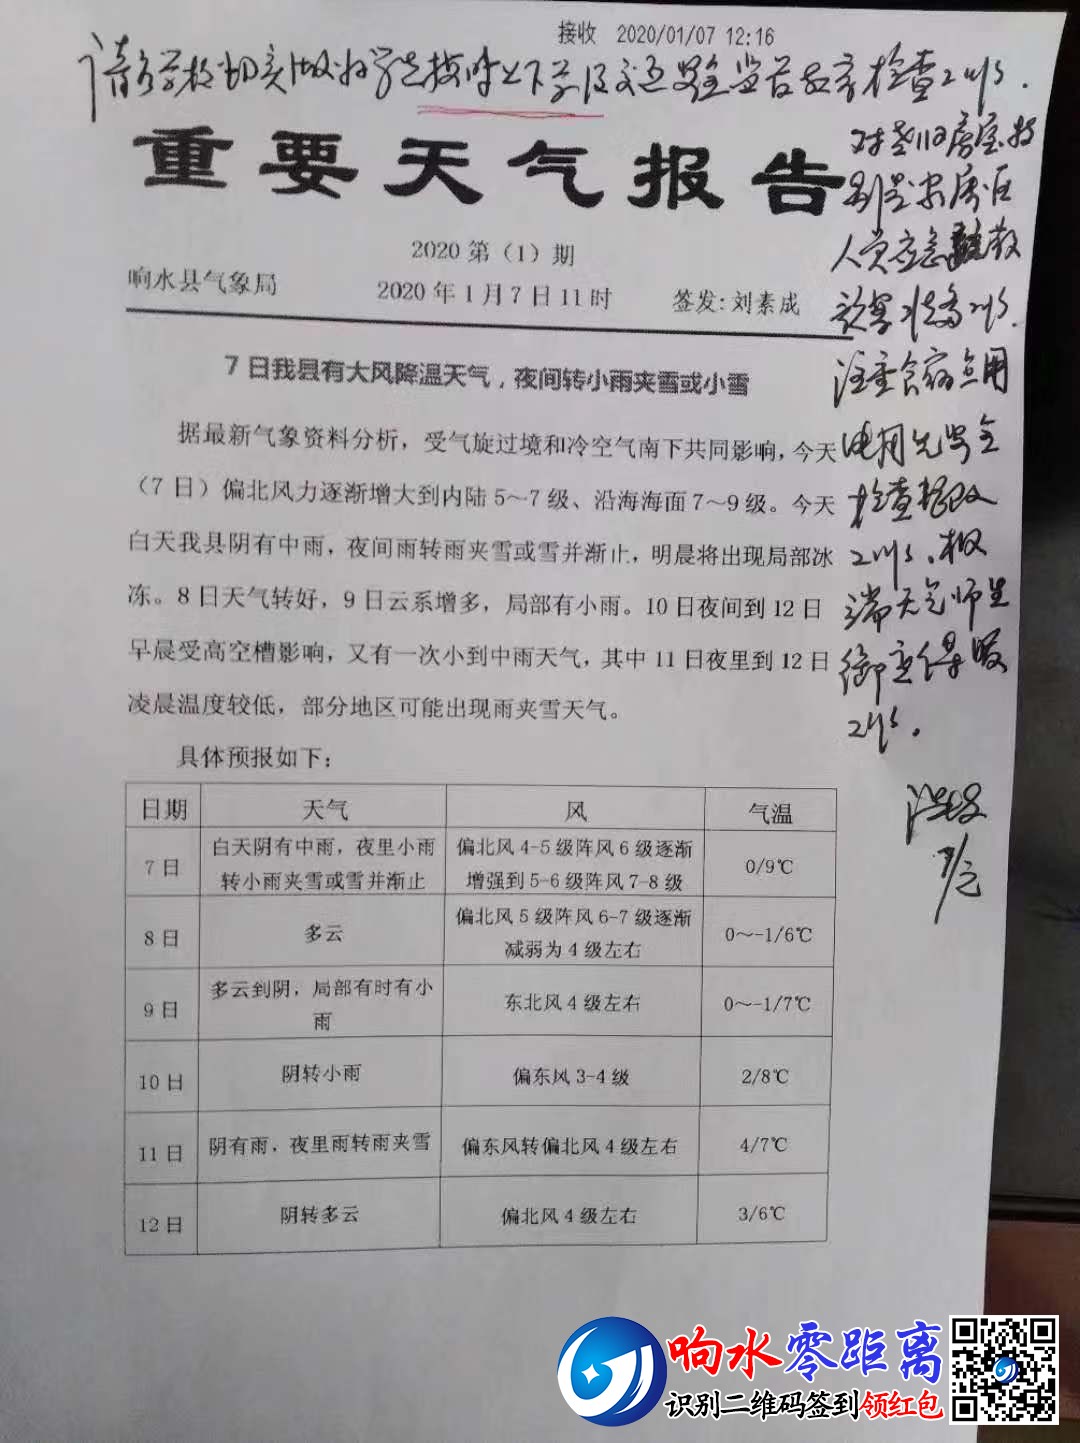 接收 2020/01/07 12:16
请各学校切实做好学生按时上下学及交通安全监管教育检查工作.
重要天气报告
2020 第（1）期
响水县气象局 2020 年 1 月 7 日 11 时 签发: 刘素成
7 日我县有大风降温天气，夜间转小雨夹雪或小雪
据最新气象资料分析，受气旋过境和冷空气南下共同影响，今天
（7 日）偏北风力逐渐增大到内陆 5～7 级、沿海海面 7～9 级。今天
白天我县阴有中雨，夜间雨转雨夹雪或雪并渐止，明晨将出现局部冰
冻。8 日天气转好，9 日云系增多，局部有小雨。10 日夜间到 12 日
早晨受高空槽影响，又有一次小到中雨天气，其中 11 日夜里到 12 日
凌晨温度较低，部分地区可能出现雨夹雪天气。
具体预报如下：
日期 天气 风 气温
7 日 白天阴有中雨，夜里小雨转小雨夹雪或雪并渐止 偏北风 4-5 级阵风 6 级逐渐增强到 5-6 级阵风 7-8 级 0/9℃
8 日 多云 偏北风 5 级阵风 6-7 级逐渐减弱为 4 级左右 0～-1/6℃
9 日 多云到阴，局部有时有小雨 东北风 4 级左右 0～-1/7℃
10 日 阴转小雨 偏东风 3-4 级 2/8℃
11 日 阴有雨，夜里雨转雨夹雪 偏东风转偏北风 4 级左右 4/7℃
12 日 阴转多云 偏北风 4 级左右 3/6℃
人员应急疏散
注重食宿点用
电用火安全
检查整改
工作、极
端天气师生
御寒保暖
工作。
响水零距离
识别二维码签到领红包